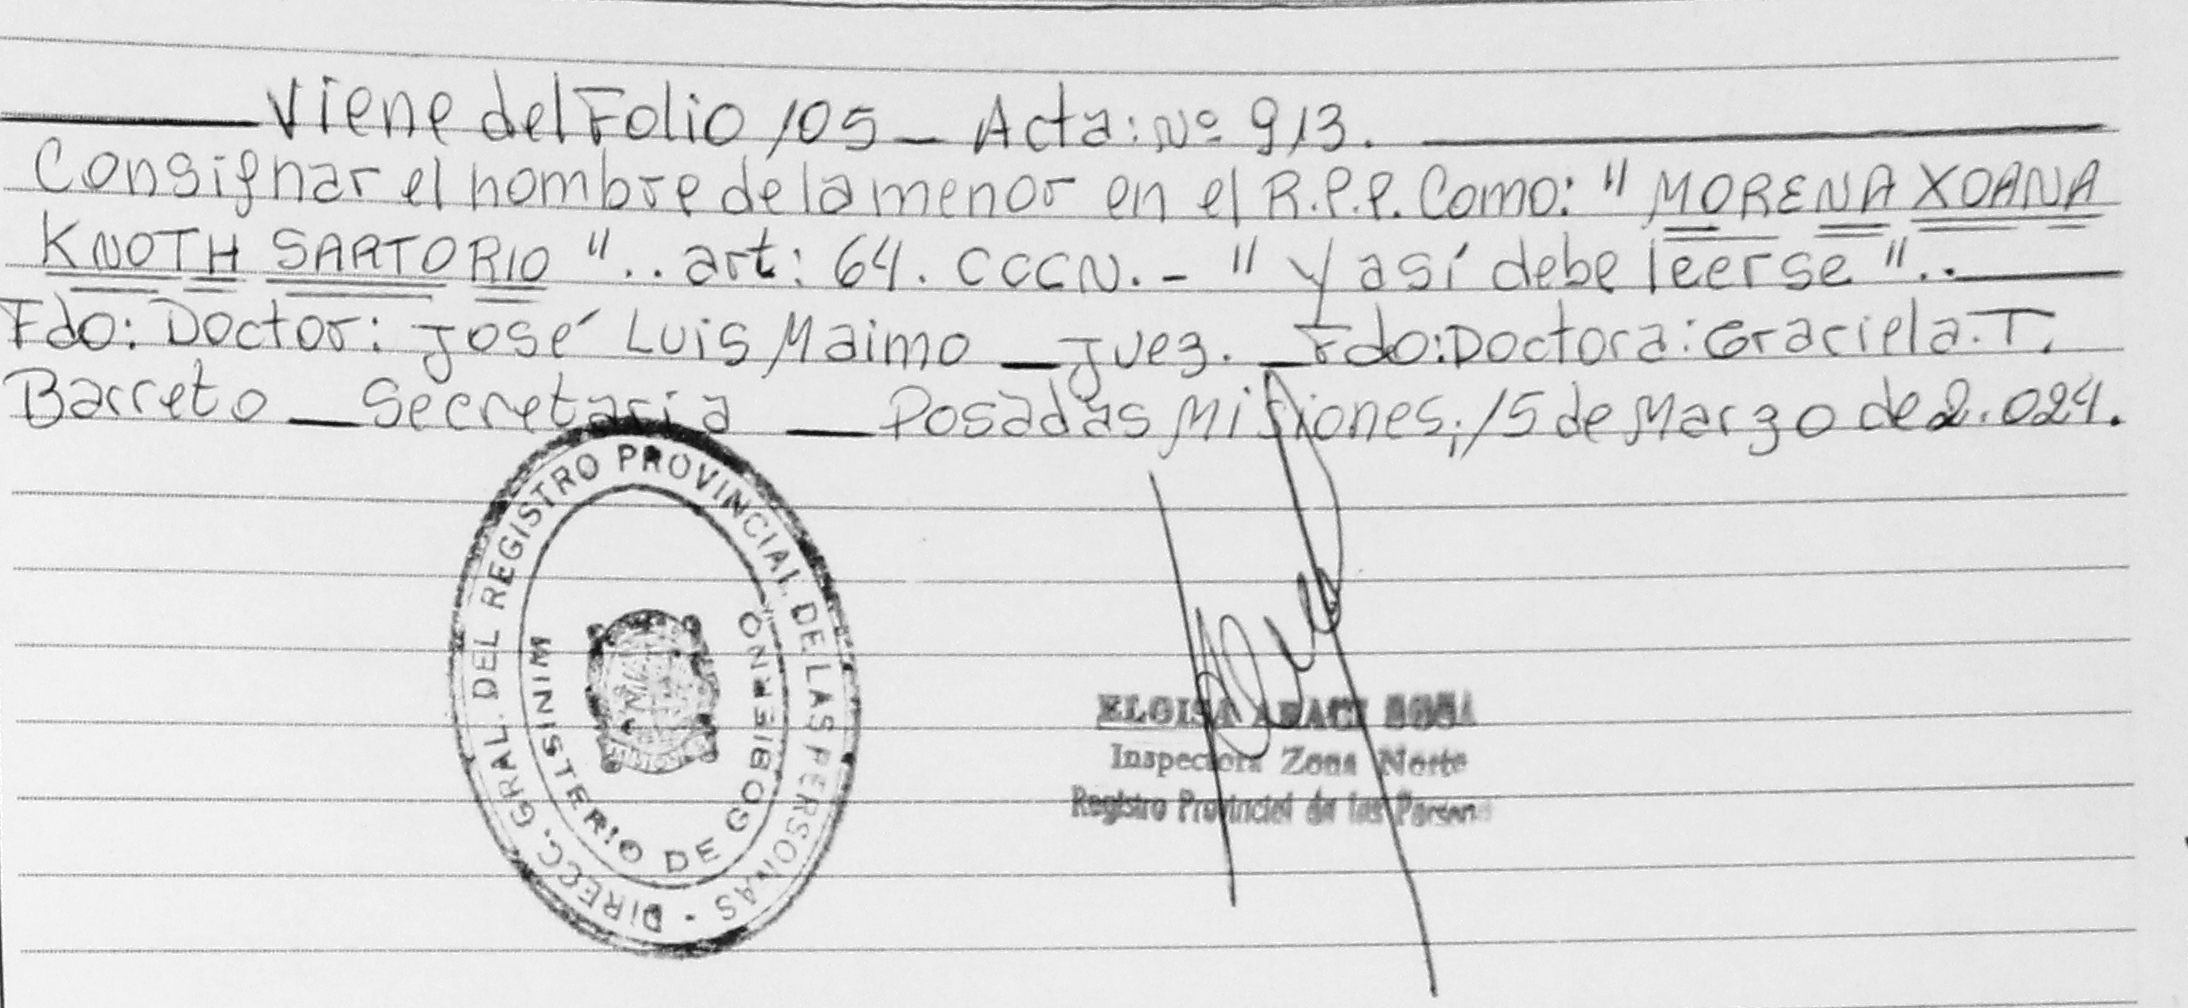 Viene del Folio 105 - Acta: Nº 913.
Consignar el nombre de la menor en el R.P.P. Como: "MORENA XOANA
KNOTH SARTORIO".. art: 64. CCCN.- "Y así debe leerse"..
Fdo: Doctor: José Luis Maimo - Juez. - Fdo: Doctora: Graciela. T.
Barreto - Secretaria - Posadas Misiones, 15 de Marzo de 2.024.
DIRECC. GRAL. DEL REGISTRO PROVINCIAL DE LAS PERSONAS -
MINISTERIO DE GOBIERNO
Inspectora Zona Norte
Registro Provincial de las Person